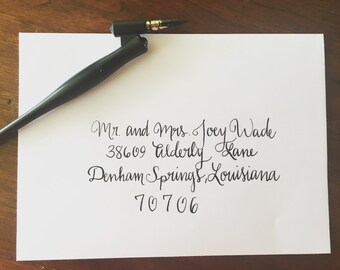 Mr. and Mrs. Joey Wade
38609 Alderly Lane
Denham Springs, Louisiana
70706